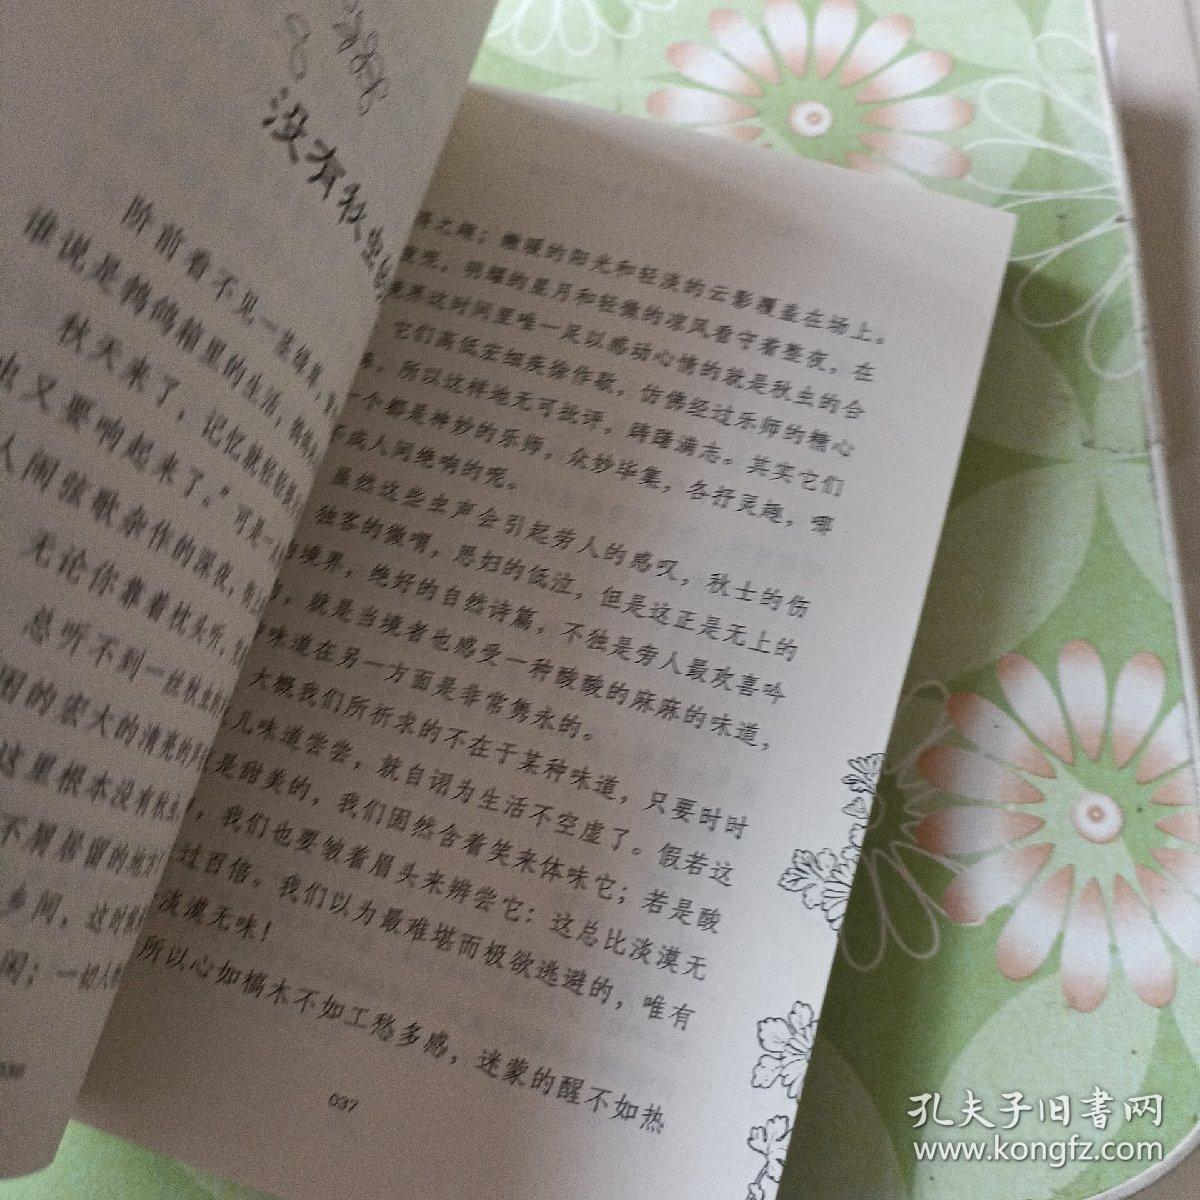 没有秋虫
阶前看不见一茎绿草，
谁说是鹁鸽箱里的生活，鹁鸽
秋天来了，记忆就轻轻
虫又要响起来了。”可是一
人间弦歌杂作的深夜，
无论你靠着枕头听，
总听不到一丝秋虫的
困的宏大的清亮的声
这里根本没有秋虫
不屑居留的地方
乡间，这时候
闲；一切人
036
之趣；微暖的阳光和轻淡的云影覆盖在场上。
死，明耀的星月和轻微的凉风看守着整夜，在
境界这时间里唯一足以感动心情的就是秋虫的合
它们高低宏细疾徐作歇，仿佛经过乐师的精心
所以这样地无可批评，踌躇满志。其实它们
一个都是神妙的乐师，众妙毕集，各抒灵趣，哪
不成人间绝响的呢。
虽然这些虫声会引起劳人的感叹，秋士的伤
独客的微喟，思妇的低泣，但是这正是无上的
境界，绝好的自然诗篇，不独是旁人最欢喜吟
，就是当境者也感受一种酸酸的麻麻的味道，
味道在另一方面是非常隽永的。
大概我们所祈求的不在于某种味道，只要时时
儿味道尝尝，就自诩为生活不空虚了。假若这
是甜美的，我们固然含着笑来体味它；若是酸
，我们也要皱着眉头来辨尝它：这总比淡漠无
过百倍。我们以为最难堪而极欲逃避的，唯有
淡漠无味！
所以心如槁木不如工愁多感，迷蒙的醒不如热
037
孔夫子旧书网
www.kongfz.com